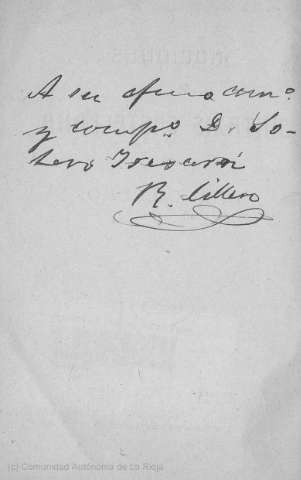 A su afmo am.º
y comp.º D. So-
tero Irazazái
R. Cillero
(c) Comunidad Autónoma de La Rioja